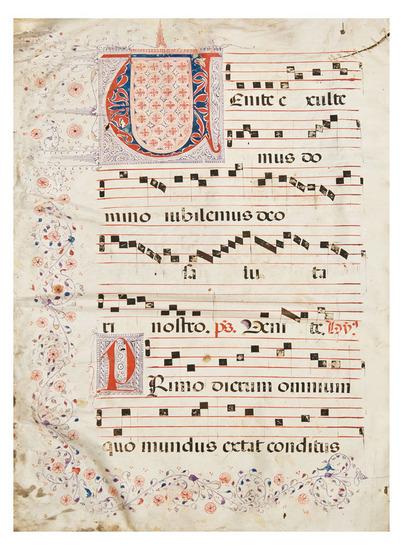 Uenite e xulte
mus do
mino iubilemus deo
sa lu ta
ri nostro. ps. Veni te. hy.
Primo dierum omnium
quo mundus extat conditus